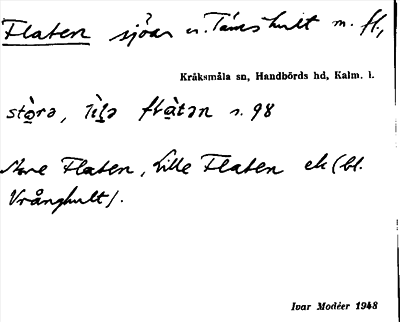 Flaten sjöar v. Támshult m. fl.,
Kråksmåla sn, Handbörds hd, Kalm. l.
stò̱rə, lìlə flà̱tən s. 98
Store Flaten, Lille Flaten ek (bl.
Vrånghult).
Ivar Modéer 1948